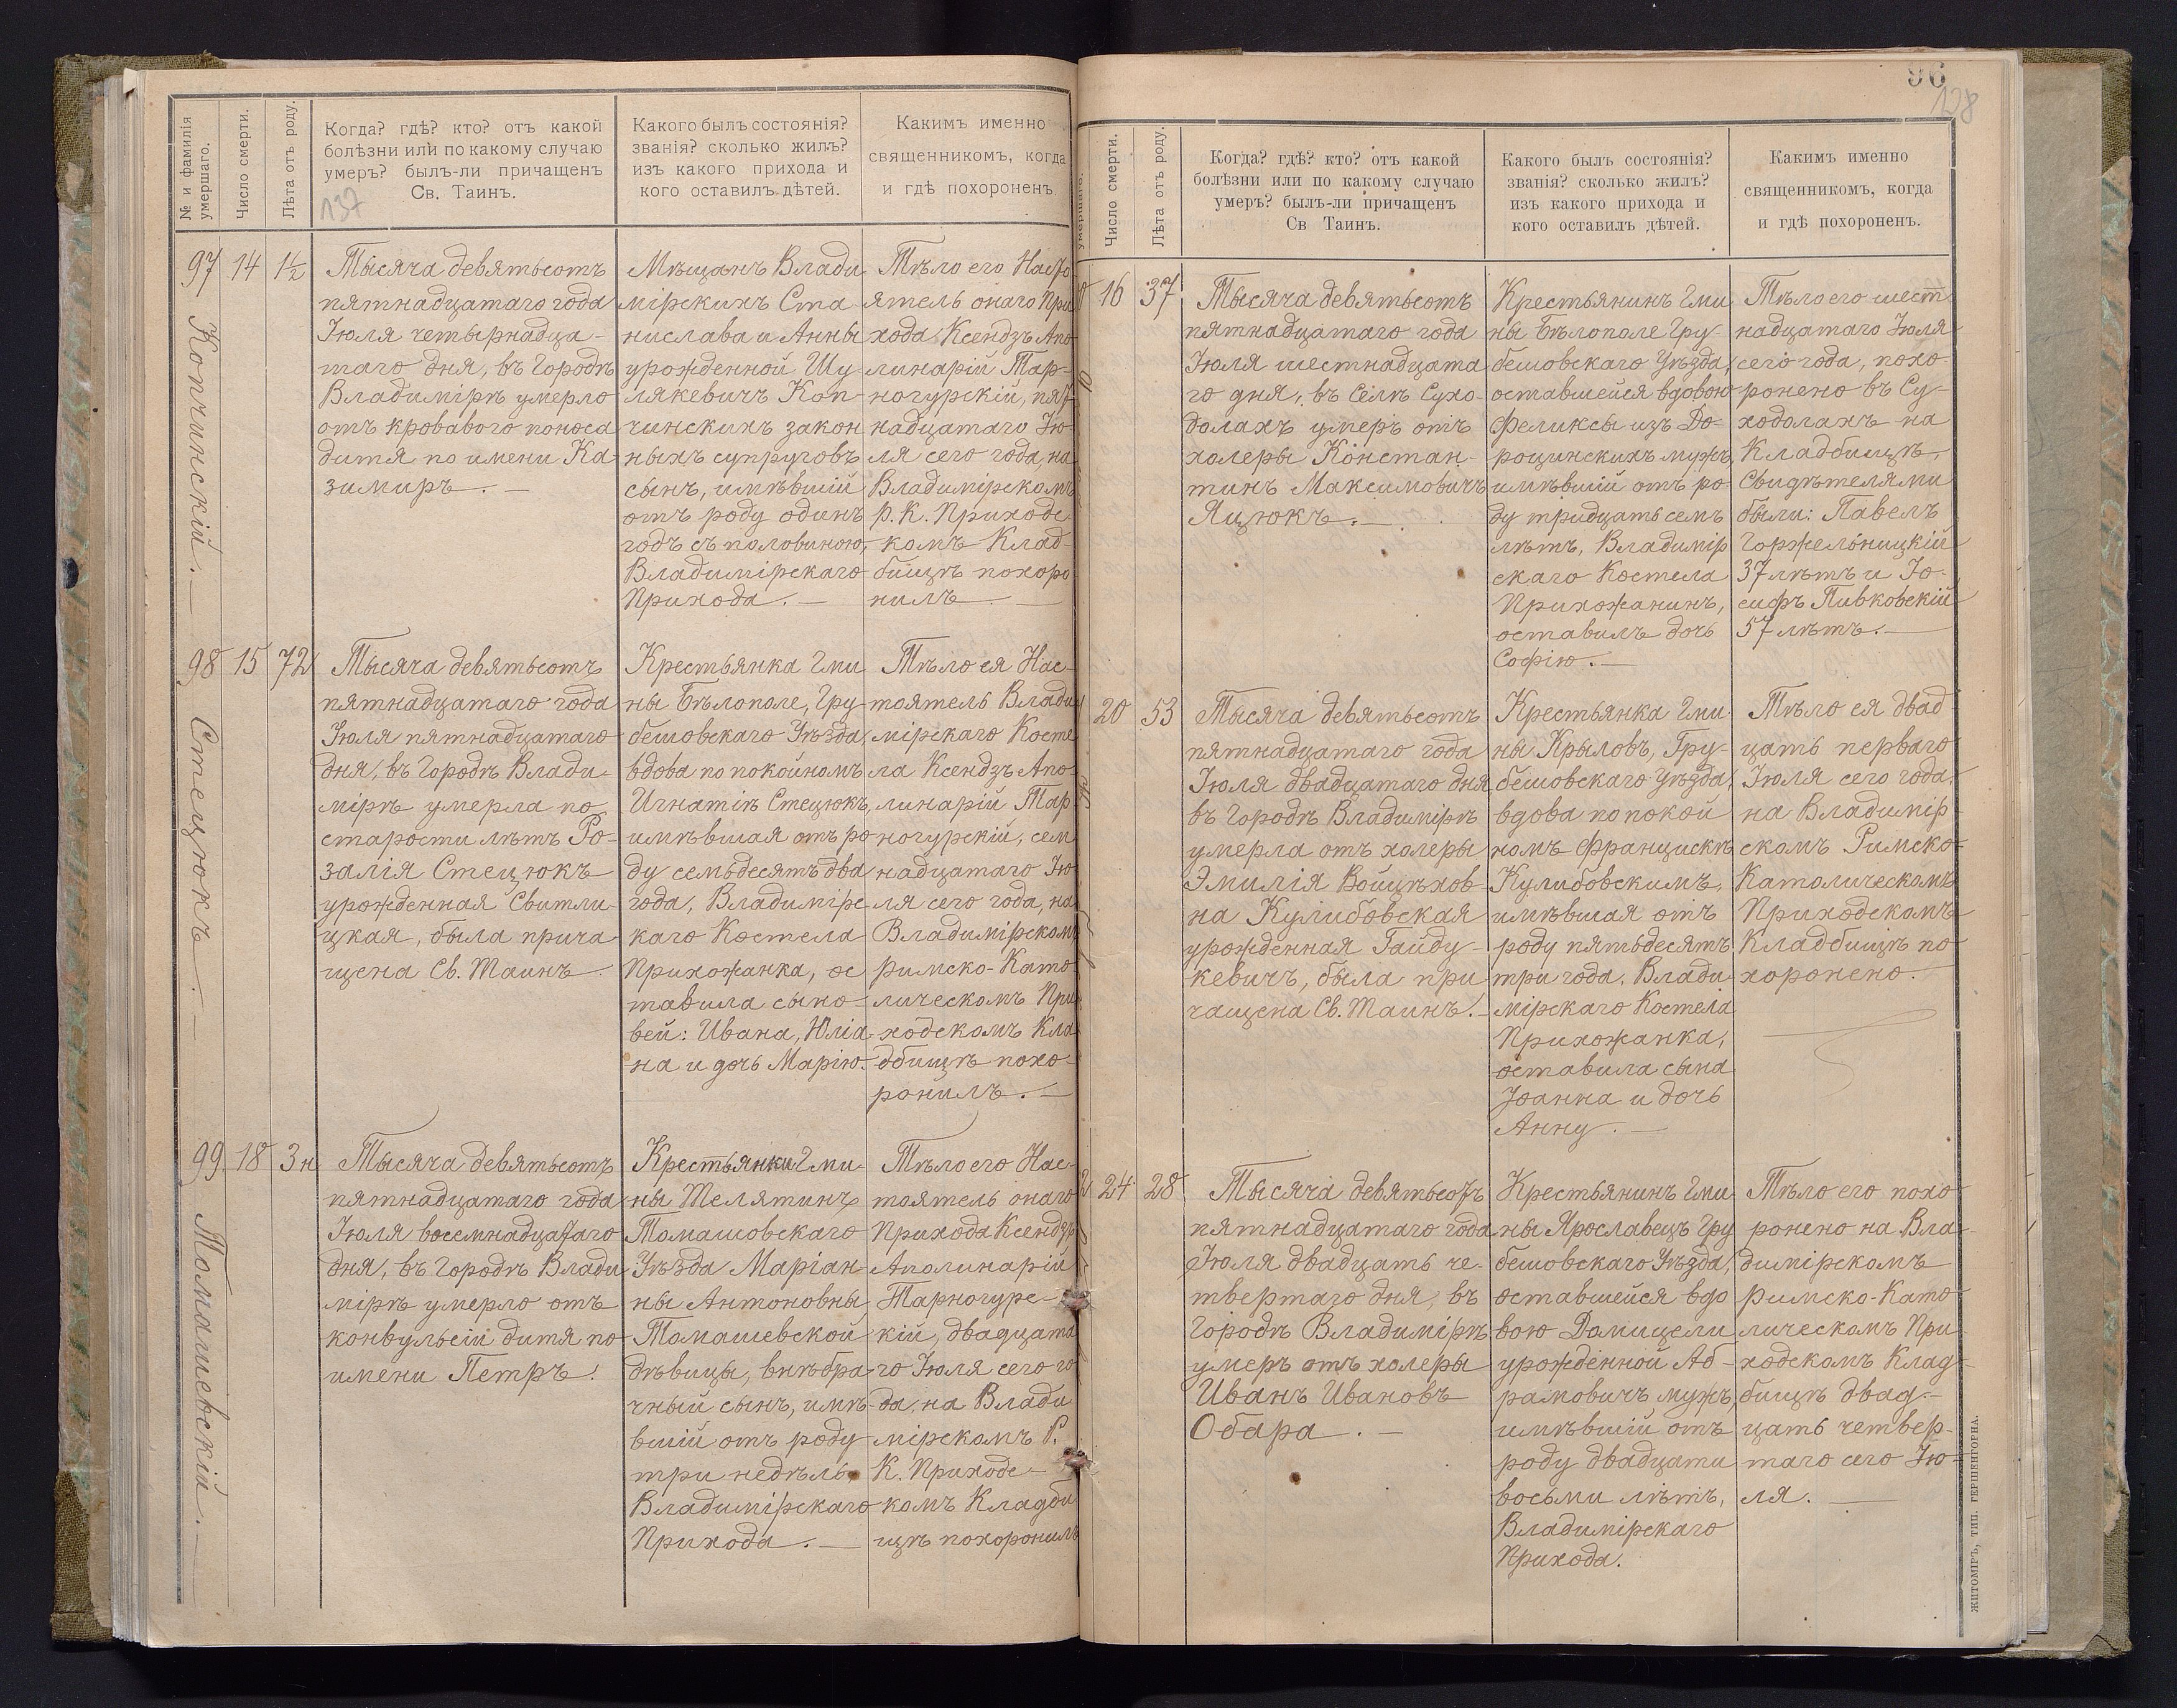 № и фамилія умершаго.
Число смерти.
Лѣта отъ роду.
Когда? гдѣ? кто? отъ какой
болѣзни или по какому случаю
умеръ? былъ-ли причащенъ
Св. Таинъ.
137
Какого былъ состоянія?
званія? сколько жилъ?
изъ какого прихода и
кого оставилъ дѣтей.
Какимъ именно
священникомъ, когда
и гдѣ похороненъ
97
Копчинскій.
14
1½
Тысяча девятьсотъ
пятнадцатаго года
Іюля четырнадца-
таго дня, въ Городѣ
Владимірѣ умерло
отъ кроваваго поноса
дитя по имени Ка-
зимиръ.
Мѣщанъ Влади
мірскихъ Ста
нислава и Анны
урожденной Шу-
лякевичъ Коп-
чинскихъ закон
ныхъ супруговъ
сынъ, имѣвшій
отъ роду одинъ
годъ съ половиною,
Владимірскаго
Прихода.
Тѣло его Насто
ятель онаго При
хода Ксендзъ Апо
линарій Тар-
ногурскій, пят
надцатаго Ію-
ля сего года, на
Владимірскомъ
Р. К. Приходс-
комъ Клад-
бищѣ похоро
нилъ
98
Стецюкъ.
15
72
Тысяча девятьсотъ
пятнадцатаго года
Іюля пятнадцатаго
дня, въ Городѣ Влади-
мірѣ умерла по
старости лѣтъ Ро-
залія Стецюкъ
урожденная Свитли-
цкая, была прича
щена Св. Таинъ.
Крестьянка Гми
ны Бѣлополе, Гру-
бешовскаго Уѣзда,
вдова по покойномъ
Игнатіѣ Стецюкъ,
имѣвшая отъ ро
ду семьдесятъ два
года, Владимірс-
каго Костела
Прихожанка, ос
тавила сыно-
вей: Ивана, Юліа
на и дочь Марію.
Тѣло ея Нас-
тоятель Влади
мірскаго Косте
ла Ксендзъ Апо-
линарій Тар
ногурскій, сем
надцатаго Ію
ля сего года, на
Владимірскомъ
римско-Като-
лическомъ При
ходскомъ Кла
дбищѣ похо-
ронилъ.
99
Томашевскій.
18
3 н
Тысяча девятьсотъ
пятнадцатаго года
Іюля восемнадцатаго
дня, въ Городѣ Влади
мірѣ умерло отъ
конвульсій дитя по
имени Петръ.
Крестьянки Гми-
ны Телятинъ
Томашовскаго
Уѣзда Маріан-
ны Антоновны
Томашевской
дѣвицы, внѣбра-
чный сынъ, имѣ-
вшій отъ роду
три недѣль
Владимірскаго
Прихода.
Тѣло его Нас-
тоятель онаго
Прихода Ксендзъ
Аполинарій
Тарногурс-
кій, двадцата
го Іюля сего го
да, на Влади
мірскомъ Р.
К. Приходс-
комъ Кладби
щѣ похоронилъ
96
138
умершаго.
Число смерти.
Лѣта отъ роду.
Когда? гдѣ? кто? отъ какой
болѣзни или по какому случаю
умеръ? былъ-ли причащенъ
Св Таинъ.
Какого былъ состоянія?
званія? сколько жилъ?
изъ какого прихода и
кого оставилъ дѣтей.
Какимъ именно
священникомъ, когда
и гдѣ похороненъ.
16
37
Тысяча девятьсотъ
пятнадцатаго года
Іюля шестнадцата
го дня, въ Селѣ Сухо-
долахъ умеръ отъ
холеры Констан-
тинъ Максимовичъ
Яцюкъ.
Крестьянинъ Гми
ны Бѣлополе Гру-
бешовскаго Уѣзда,
оставшейся вдовою
Феликсы изъ До-
рощинскихъ мужъ,
имѣвшій отъ ро-
ду тридцать семъ
лѣтъ, Владимір
скаго Костела
Прихожанинъ,
оставилъ дочь
Софію.
Тѣло его шест
надцатаго Іюля
сего года, похо-
ронено въ Су-
ходолахъ на
Кладбищѣ,
Свидѣтелями
были: Павелъ
Горжельницкій
37 лѣтъ и Іо-
сифъ Пивковскій
57 лѣтъ.
20
53
Тысяча девятьсотъ
пятнадцатаго года
Іюля двадцатаго дня
въ Городѣ Владимірѣ
умерла отъ холеры
Эмилія Войцѣхов-
на Кулибовская
урожденная Гайду-
кевичъ, была при
чащена Св. Таинъ.
Крестьянка Гми
ны Крыловъ, Гру-
бешовскаго Уѣзда,
вдова по покой
номъ Францискѣ
Кулибовскимъ,
имѣвшая отъ
роду пятьдесятъ
три года, Влади
мірскаго Костела
Прихожанка,
оставила сына
Іоанна и дочь
Анну.
Тѣло ея двад
цать перваго
Іюля сего года,
на Владимір-
скомъ Римско-
Католическомъ
Приходскомъ
Кладбищѣ по
хоронено.
24
28
Тысяча девятьсотъ
пятнадцатаго года
Іюля двадцать че-
твертаго дня, въ
Городѣ Владимірѣ
умеръ отъ холеры
Иванъ Ивановъ
Обара.
Крестьянинъ Гми
ны Ярославецъ Гру
бешовскаго Уѣзда,
оставшейся вдо
вою Домицели
урожденной Аб-
рамовичъ мужъ,
имѣвшій отъ
роду двадцати
восьми лѣтъ,
Владимірскаго
Прихода.
Тѣло его похо
ронено на Вла-
димірскомъ
римско-Като
лическомъ При
ходскомъ Клад-
бищѣ двад-
цать четвер-
таго сего Ію-
ля.
ЖИТОМІРЪ, ТИП. ГЕРШЕНГОРНА.